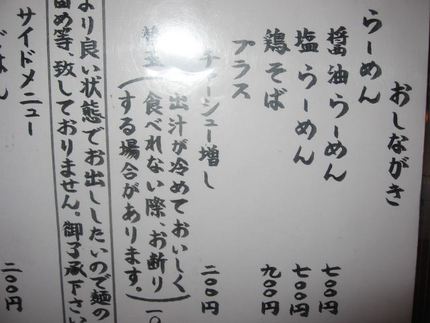 おしながき
らーめん
醤油らーめん 七〇〇円
塩らーめん 七〇〇円
鶏そば 九〇〇円
プラス
チャーシュー増し 二〇〇円
替玉
(出汁が冷めておいしく
食べれない際、お断り
する場合があります。)
より良い状態でお出ししたいので麺の
固め等致しておりません。御了承下さい
サイドメニュー
ごはん 二〇〇円